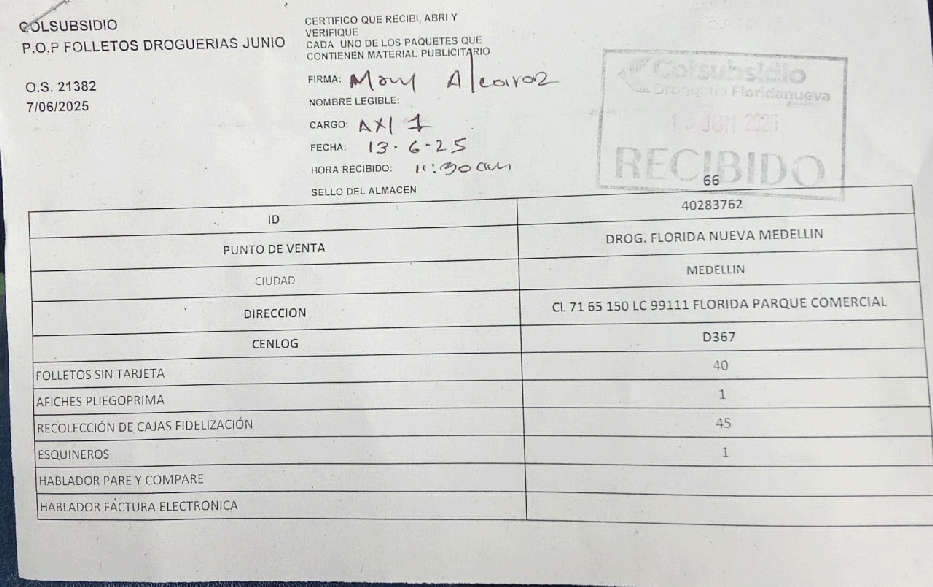 COLSUBSIDIO
P.O.P FOLLETOS DROGUERIAS JUNIO
O.S. 21382
7/06/2025
CERTIFICO QUE RECIBI, ABRI Y
VERIFIQUE
CADA UNO DE LOS PAQUETES QUE
CONTIENEN MATERIAL PUBLICITARIO
FIRMA: Mary Alcaraz
NOMBRE LEGIBLE:
CARGO: AXI 1
FECHA: 13-6-25
HORA RECIBIDO: 11:30am
SELLO DEL ALMACEN
Colsubsidio
Droguería Floridanueva
13 JUN 2025
RECIBIDO
66
ID 40283762
PUNTO DE VENTA DROG. FLORIDA NUEVA MEDELLIN
CIUDAD MEDELLIN
DIRECCION CL 71 65 150 LC 99111 FLORIDA PARQUE COMERCIAL
CENLOG D367
FOLLETOS SIN TARJETA 40
AFICHES PLIEGOPRIMA 1
RECOLECCIÓN DE CAJAS FIDELIZACIÓN 45
ESQUINEROS 1
HABLADOR PARE Y COMPARE
HABLADOR FACTURA ELECTRONICA